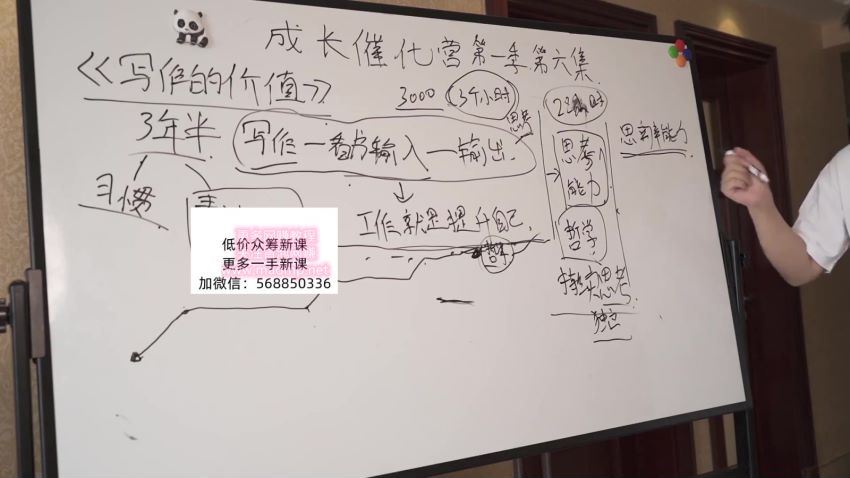 成长催化营第一季第六集
《写作的价值》
3000 (3个小时)
3年半
写作—看书输入—输出
思考
习惯
工作就是提升自己
哲学
思考
能力
哲学
持续思考
独立
思考能力
低价众筹新课
更多一手新课
加微信：568850336